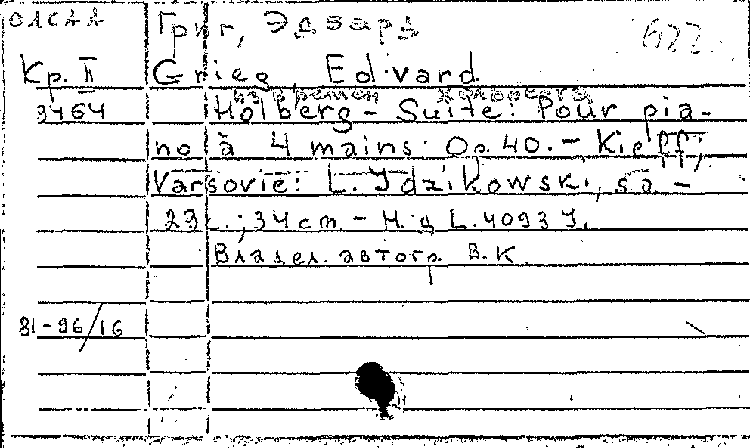 ОЛСАА Григ, Эдвард 622
Кр. II Grieg, Edvard
Из времен Хольберга
3464 Holberg - Suite: Pour pia-
no à 4 mains. Op. 40. - Kieff;
Varsovie: L. Idzikowski, s.a -
23 с.; 34 cm - Н. д L. 4093 J.
Владел. автогр. В. К
81-96/16